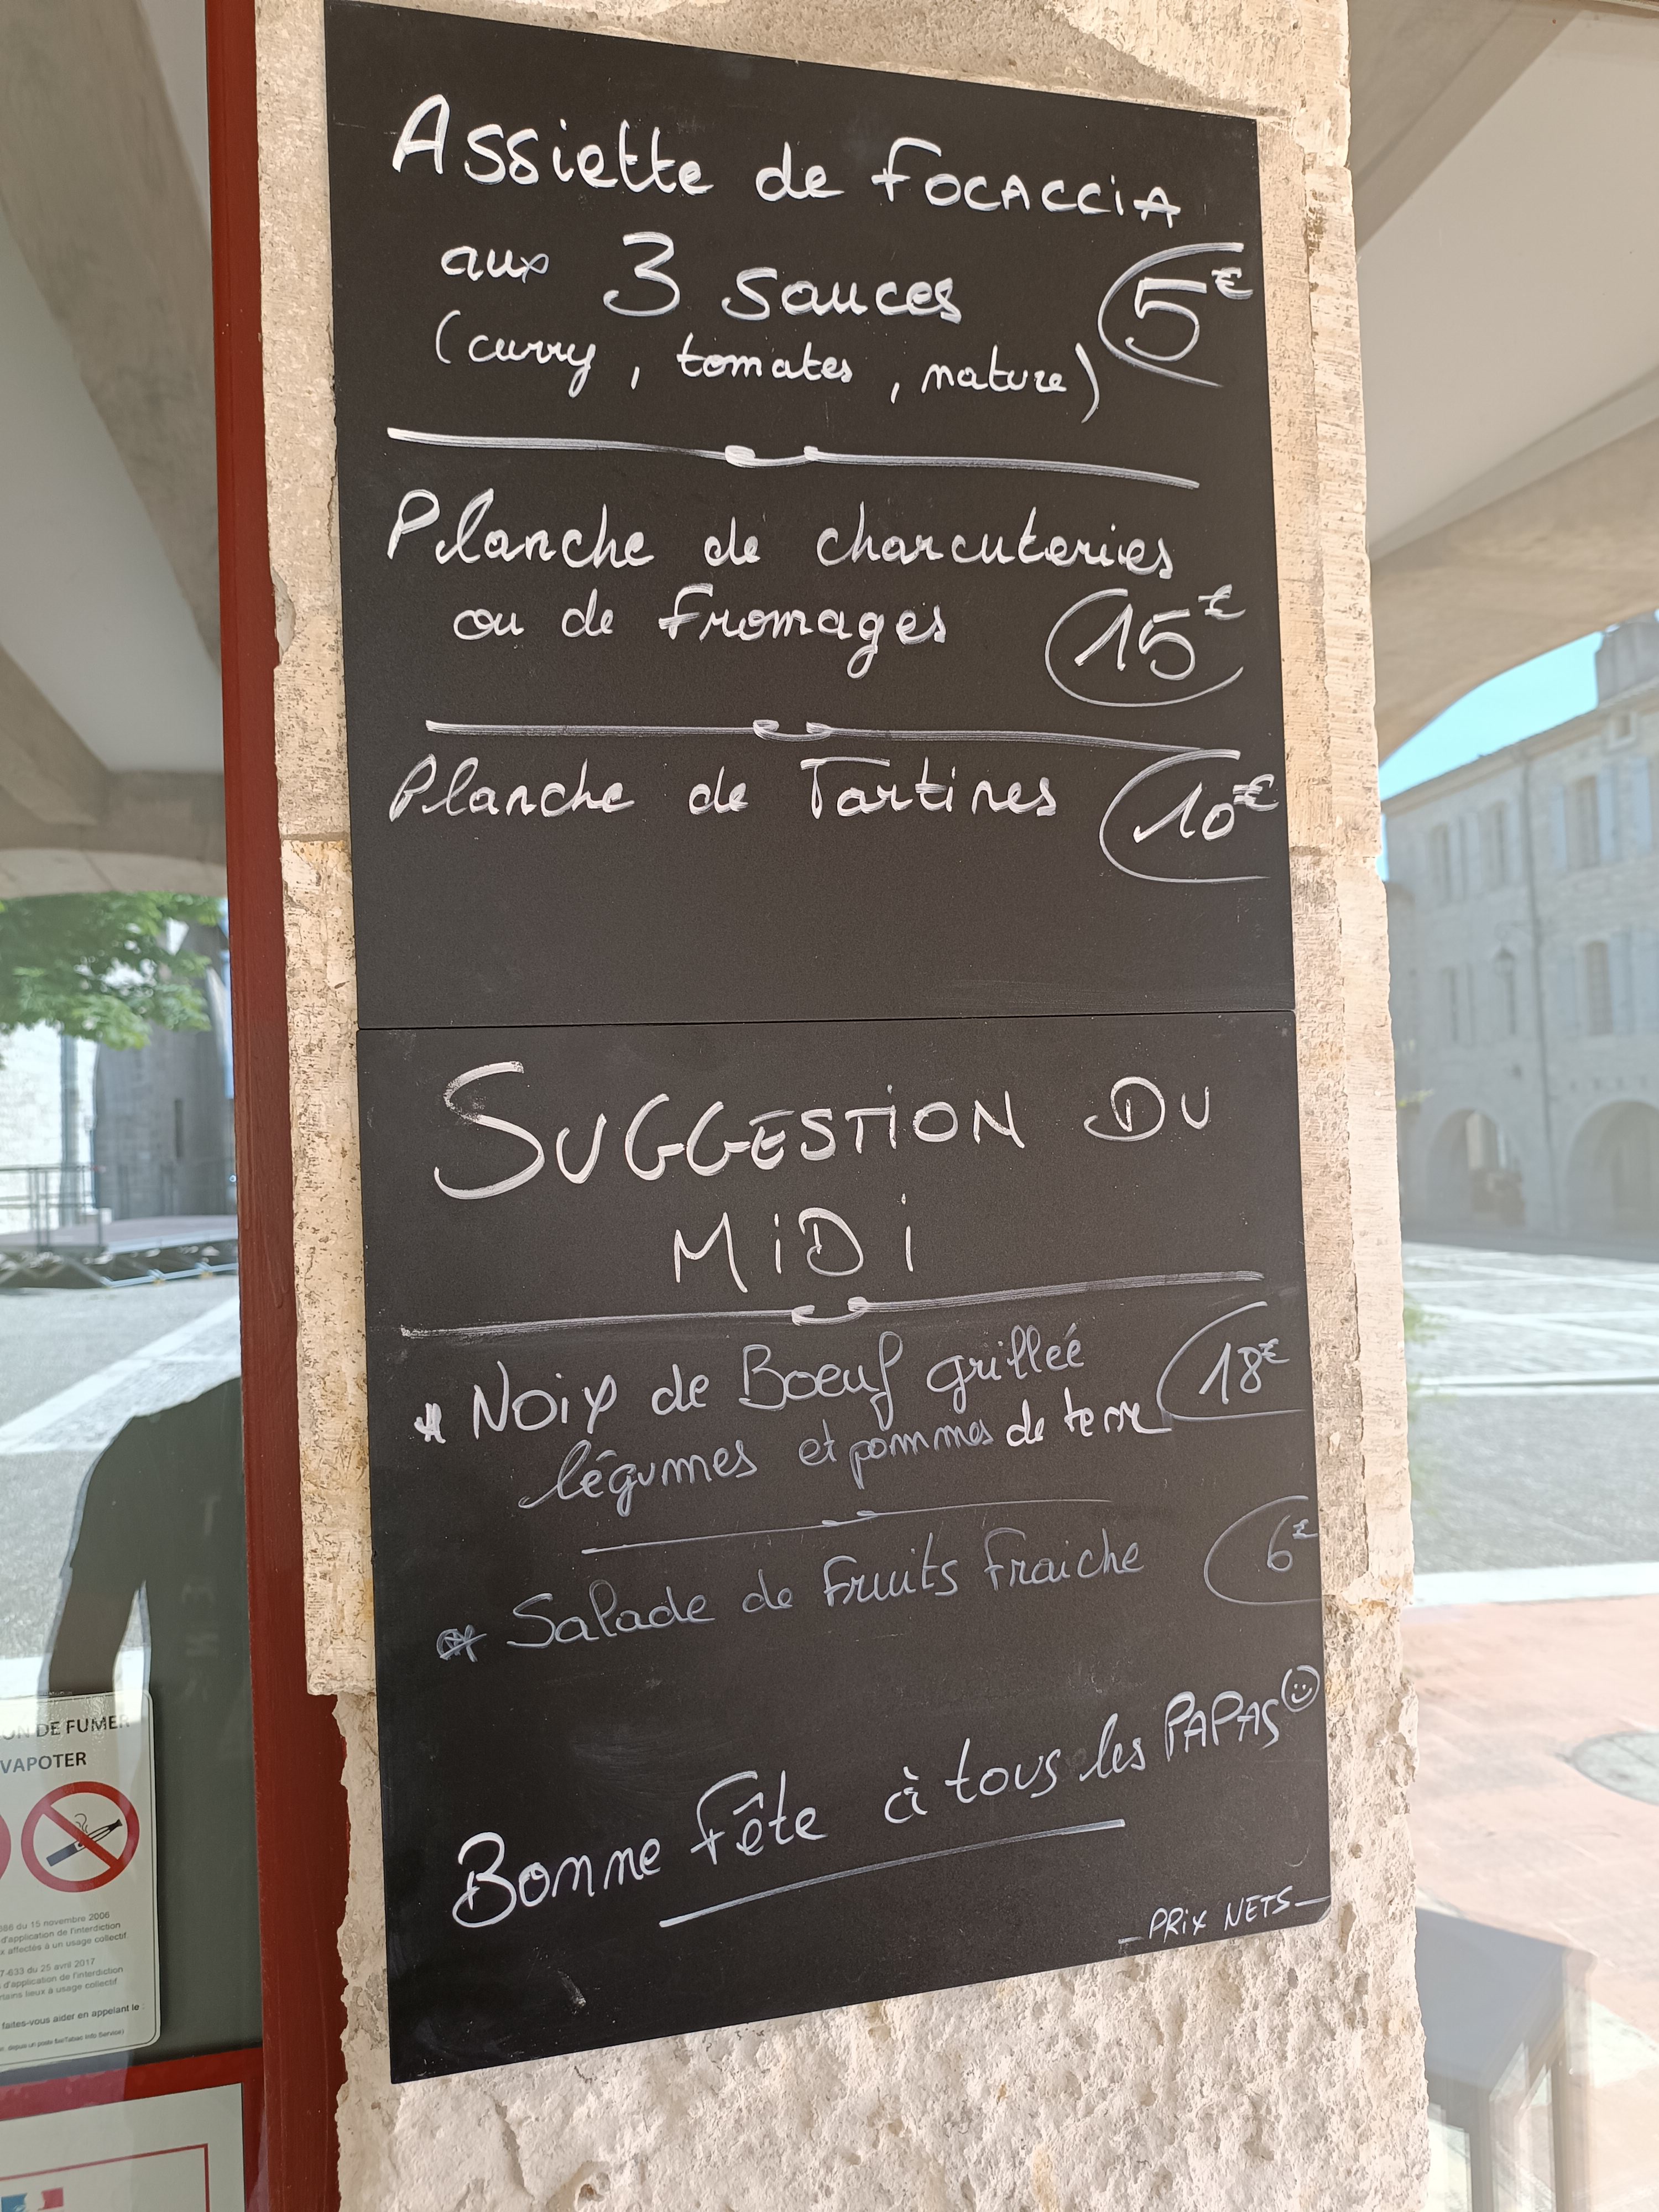 Assiette de FOCACCiA
aux 3 sauces 5€
(curry, tomates, nature)
Planche de charcuteries
ou de fromages 15€
Planche de Tartines 10€
SUGGESTiON DU
MiDi
* Noix de Boeuf grilleé 18€
légumes et pommes de terre
* Salade de fruits fraiche 6€
Bonne fête à tous les PAPAS
PRiX NETS
DE FUMER
VAPOTER
du 15 novembre 2006
d'application de l'interdiction
affectés à un usage collectif
du 25 avril 2017
d'application de l'interdiction
lieux à usage collectif
faites-vous aider en appelant le